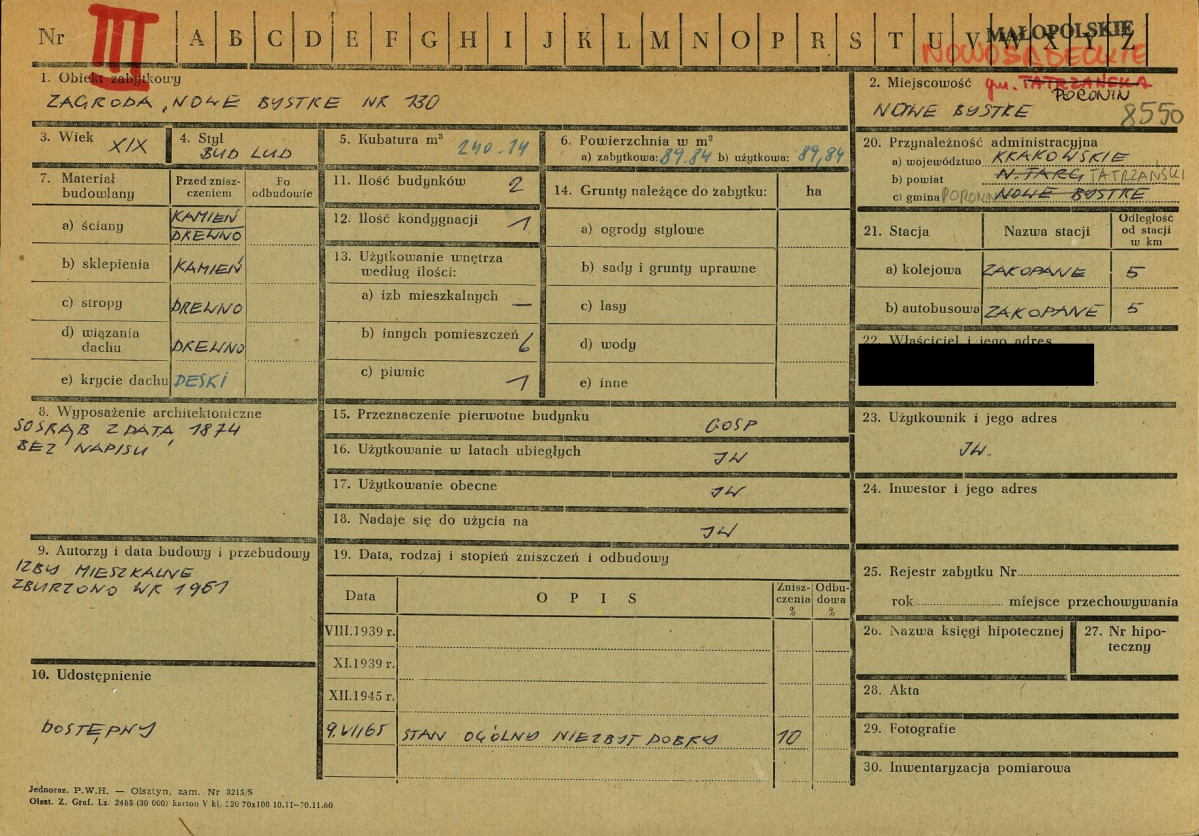 Nr III A B C D E F G H I J K L M N O P R S T U V W X Y Z
MAŁOPOLSKIE
NOWOSĄDECKIE
1. Obiekt zabytkowy
ZAGRODA, NOWE BYSTRE NR 130
2. Miejscowość gm. TATRZAŃSKA
PORONIN
NOWE BYSTRE 8550
3. Wiek XIX
4. Styl
BUD LUD
5. Kubatura m³ 240.14
6. Powierzchnia w m²
a) zabytkowa: 89.84 b) użytkowa: 89,84
20. Przynależność administracyjna
a) województwo KRAKOWSKIE
b) powiat N.TARG TATRZAŃSKI
c) gmina PORONIN NOWE BYSTRE
7. Materiał budowlany
Przed znisz-
czeniem
Po
odbudowie
a) ściany KAMIEŃ
DREWNO
b) sklepienia KAMIEŃ
c) stropy DREWNO
d) wiązania
dachu DREWNO
e) krycie dachu DESKI
11. Ilość budynków 2
12. Ilość kondygnacji 1
13. Użytkowanie wnętrza
według ilości:
a) izb mieszkalnych —
b) innych pomieszczeń 6
c) piwnic 1
14. Grunty należące do zabytku: ha
a) ogrody stylowe
b) sady i grunty uprawne
c) lasy
d) wody
e) inne
21. Stacja Nazwa stacji
Odległość
od stacji
w km
a) kolejowa ZAKOPANE 5
b) autobusowa ZAKOPANE 5
22. Właściciel i jego adres
8. Wyposażenie architektoniczne
SOSRĄB Z DATĄ 1874
BEZ NAPISU
15. Przeznaczenie pierwotne budynku
GOSP
16. Użytkowanie w latach ubiegłych
JW
17. Użytkowanie obecne
JW
18. Nadaje się do użycia na
JW
23. Użytkownik i jego adres
JW.
24. Inwestor i jego adres
9. Autorzy i data budowy i przebudowy
IZBY MIESZKALNE
ZBURZONO W R 1961
19. Data, rodzaj i stopień zniszczeń i odbudowy
Data OPIS
Znisz-
czenia
%
Odbu-
dowa
%
VIII.1939 r.
XI.1939 r.
XII.1945 r.
9.VII65 STAN OGÓLNY NIEZBYT DOBRY 10
25. Rejestr zabytku Nr
rok miejsce przechowywania
26. Nazwa księgi hipotecznej
27. Nr hipo-
teczny
28. Akta
29. Fotografie
30. Inwentaryzacja pomiarowa
10. Udostępnienie
DOSTĘPNY
Jednoraz. P.W.H. — Olsztyn, zam. Nr 3215/S
Olszt. Z. Graf. Lz. 2465 (30 000) karton V kl. 220 70x100 10.11—70.11.60